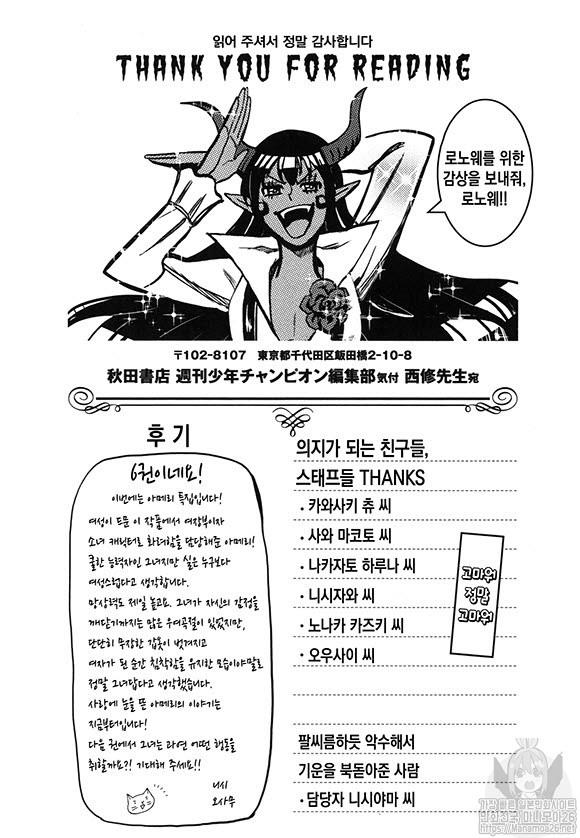 읽어 주셔서 정말 감사합니다
THANK YOU FOR READING
로노웨를 위한
감상을 보내줘,
로노웨!!
〒102-8107 東京都千代田区飯田橋2-10-8
秋田書店 週刊少年チャンピオン編集部気付 西修先生宛
후기
6권이네요!
이번에는 아메리 특집입니다!
여성이 드문 이 작품에서 여장부이자
소녀 캐릭터로 화려함을 담당해준 아메리!
쿨한 능력자인 그녀지만 실은 누구보다
여성스럽다고 생각합니다.
망상력도 제일 높고요. 그녀가 자신의 감정을
깨닫기까지는 많은 우여곡절이 있었지만,
단단히 무장한 갑옷이 벗겨지고
여자가 된 순간 침착함을 유지한 모습이야말로
정말 그녀답다고 생각했습니다.
사랑에 눈을 뜬 아메리의 이야기는
지금부터입니다!
다음 권에서 그녀는 과연 어떤 행동을
취할까요?! 기대해 주세요!!
니시
오사무
의지가 되는 친구들,
스태프들 THANKS
・카와사키 츄 씨
・사와 마코토 씨
・나카자토 하루나 씨
・니시자와 씨
・노나카 카즈키 씨
・오우사이 씨
고마워
정말
고마워
팔씨름하듯 악수해서
기운을 북돋아준 사람
・담당자 니시야마 씨
가장 빠른 일본만화사이트
만화천국 마나모아26
https://Manamoa26.net